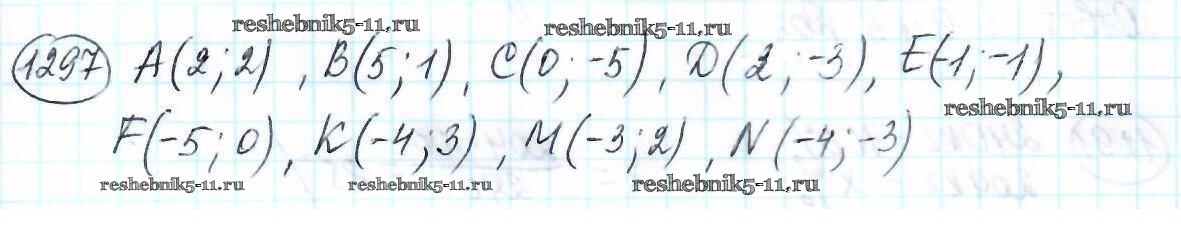 reshebnik5-11.ru reshebnik5-11.ru
1297 A(2;2), B(5;1), C(0;-5), D(2;-3), E(-1;-1),
reshebnik5-11.ru
F(-5;0), K(-4;3), M(-3;2), N(-4;-3)
reshebnik5-11.ru reshebnik5-11.ru reshebnik5-11.ru